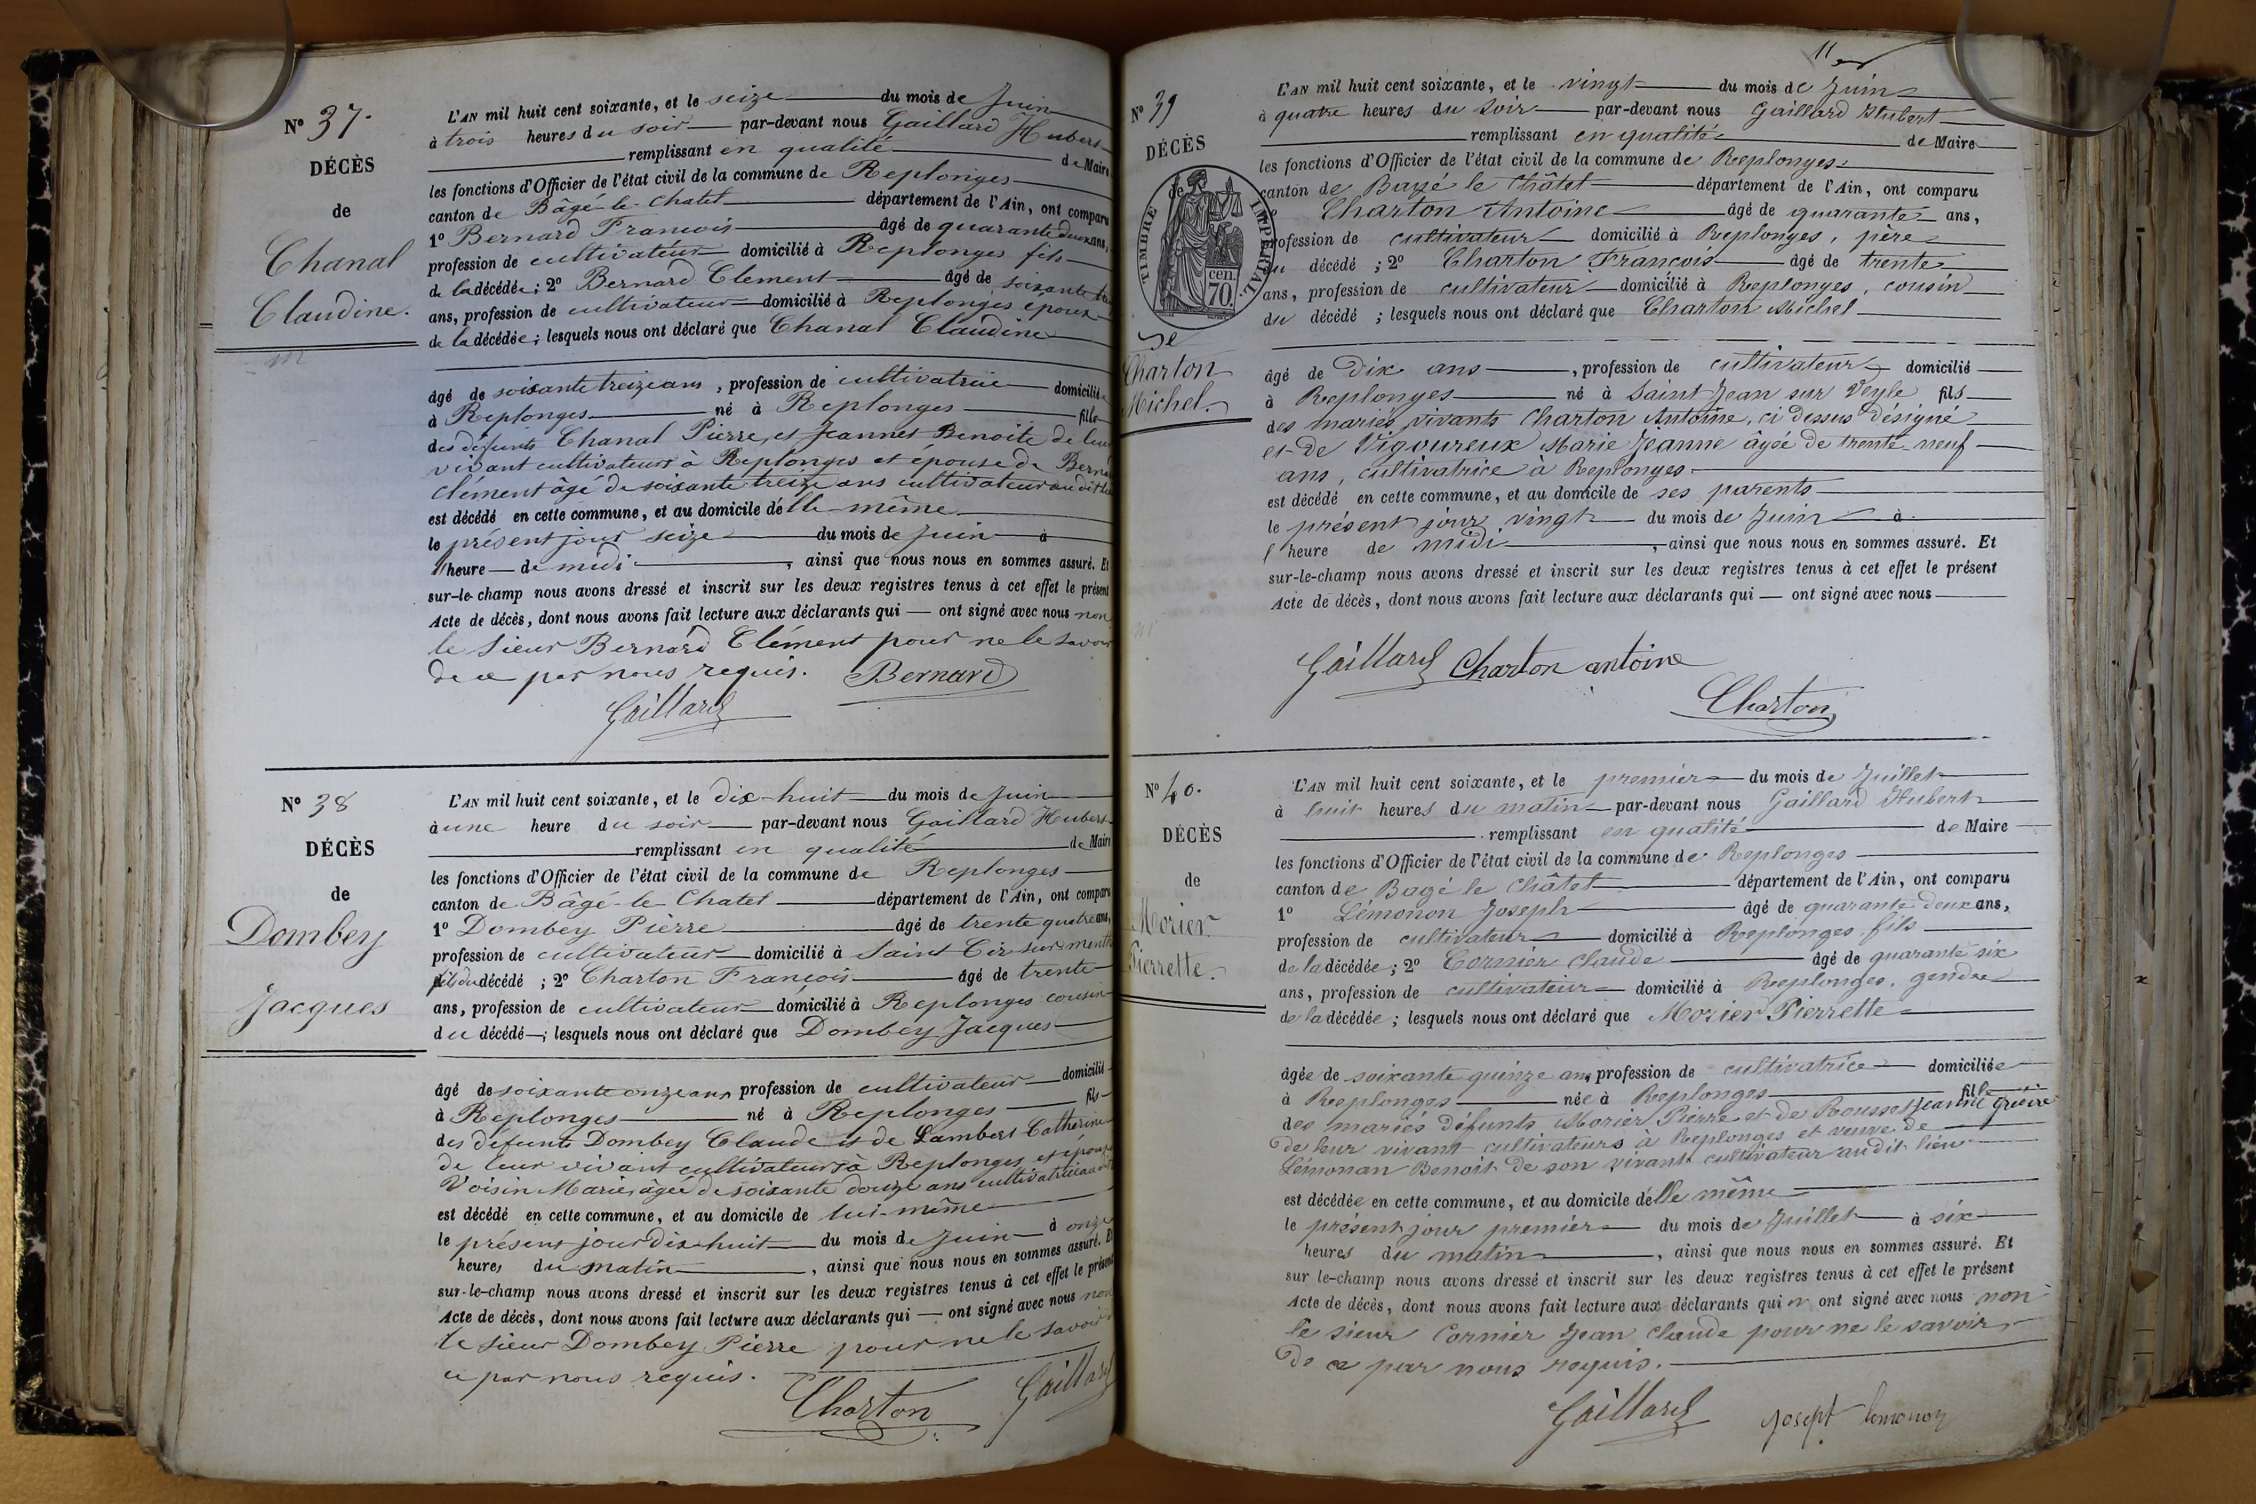 N° 37.
DÉCÈS
de
Chanal
Claudine.
L'AN mil huit cent soixante, et le seize du mois de Juin
à trois heures du soir par-devant nous Gaillard Hubert
remplissant en qualité de Maire
les fonctions d'Officier de l'état civil de la commune de Replonges
canton de Bâgé-le-Chatel département de l'Ain, ont comparu
1° Bernard François âgé de quarante deux ans,
profession de cultivateur domicilié à Replonges fils
de la décédée; 2° Bernard Clement âgé de soixante
ans, profession de cultivateur domicilié à Replonges époux
de la décédée; lesquels nous ont déclaré que Chanal Claudine
âgé de soixante treize ans, profession de cultivatrice domicilié
à Replonges né à Replonges fille
des défunts Chanal Pierre, et Jeannet Benoite de leur
vivant cultivateurs à Replonges et épouse de Bernard
Clément âgé de soixante treize ans cultivateur audit lieu
est décédé en cette commune, et au domicile d'elle même
le présent jour seize du mois de Juin à
l'heure de midi, ainsi que nous nous en sommes assuré. Et
sur-le-champ nous avons dressé et inscrit sur les deux registres tenus à cet effet le présent
Acte de décès, dont nous avons fait lecture aux déclarants qui — ont signé avec nous non
le Sieur Bernard Clément pour ne le savoir
de ce par nous requis. Bernard
Gaillard
N° 38
DÉCÈS
de
Dombey
Jacques
L'AN mil huit cent soixante, et le dix-huit du mois de Juin
à une heure du soir par-devant nous Gaillard Hubert
remplissant en qualité de Maire
les fonctions d'Officier de l'état civil de la commune de Replonges
canton de Bâgé-le-Chatel département de l'Ain, ont comparu
1° Dombey Pierre âgé de trente quatre ans,
profession de cultivateur domicilié à Saint Cir sur menthon
fils du décédé; 2° Charton François âgé de trente
ans, profession de cultivateur domicilié à Replonges cousin
du décédé; lesquels nous ont déclaré que Dombey Jacques
âgé de soixante onze ans, profession de cultivateur domicilié
à Replonges né à Replonges fils
des défunts Dombey Claude et de Lambert Catherine
de leur vivant cultivateurs à Replonges et époux de
Voisin Marie, âgée de soixante douze ans cultivatrice audit
est décédé en cette commune, et au domicile de lui-même
le présent jour dix-huit du mois de Juin à onze
heures du matin, ainsi que nous nous en sommes assuré. Et
sur-le-champ nous avons dressé et inscrit sur les deux registres tenus à cet effet le présent
Acte de décès, dont nous avons fait lecture aux déclarants qui — ont signé avec nous non
le Sieur Dombey Pierre pour ne le savoir
ce par nous requis.
Charton Gaillard
11
N° 39
DÉCÈS
de
TIMBRE IMPÉRIAL
70 cen.
de
Charton
Michel.
L'AN mil huit cent soixante, et le vingt du mois de Juin
à quatre heures du soir par-devant nous Gaillard Hubert
remplissant en qualité de Maire
les fonctions d'Officier de l'état civil de la commune de Replonges
canton de Bagé le Châtel département de l'Ain, ont comparu
Charton Antoine âgé de quarante ans,
profession de cultivateur domicilié à Replonges, père
du décédé; 2° Charton François âgé de trente
ans, profession de cultivateur domicilié à Replonges, cousin
du décédé; lesquels nous ont déclaré que Charton Michel
âgé de Dix ans, profession de cultivateur domicilié
à Replonges né à Saint Jean sur Veyle fils
des mariés vivants Charton Antoine, ci dessus désigné
et de Vigoureux Marie Jeanne âgée de trente neuf
ans, cultivatrice à Replonges
est décédé en cette commune, et au domicile de ses parents
le présent jour vingt du mois de Juin à
l'heure de midi, ainsi que nous nous en sommes assuré. Et
sur-le-champ nous avons dressé et inscrit sur les deux registres tenus à cet effet le présent
Acte de décès, dont nous avons fait lecture aux déclarants qui — ont signé avec nous
Gaillard Charton antoine
Charton
N° 40.
DÉCÈS
de
Morier
Pierrette.
L'AN mil huit cent soixante, et le premier du mois de Juillet
à huit heures du matin par-devant nous Gaillard Hubert
remplissant en qualité de Maire
les fonctions d'Officier de l'état civil de la commune de Replonges
canton de Bagé le Châtel département de l'Ain, ont comparu
1° Lémonon Joseph âgé de quarante deux ans,
profession de cultivateur domicilié à Replonges, fils
de la décédée; 2° Cornier Claude âgé de quarante six
ans, profession de cultivateur domicilié à Replonges, gendre
de la décédée; lesquels nous ont déclaré que Morier Pierrette
âgée de soixante quinze ans, profession de cultivatrice domiciliée
à Replonges née à Replonges fille
des mariés défunts Morier Pierre et de Rousset Jeanne
de leur vivant cultivateurs à Replonges et veuve de
Lémonon Benoit de son vivant cultivateur audit lieu
est décédée en cette commune, et au domicile d'elle même
le présent jour premier du mois de Juillet à six
heures du matin, ainsi que nous nous en sommes assuré. Et
sur le-champ nous avons dressé et inscrit sur les deux registres tenus à cet effet le présent
Acte de décès, dont nous avons fait lecture aux déclarants qui ont signé avec nous non
le sieur Cornier Jean Claude pour ne le savoir
de ce par nous requis.
Gaillard Josept lemonon